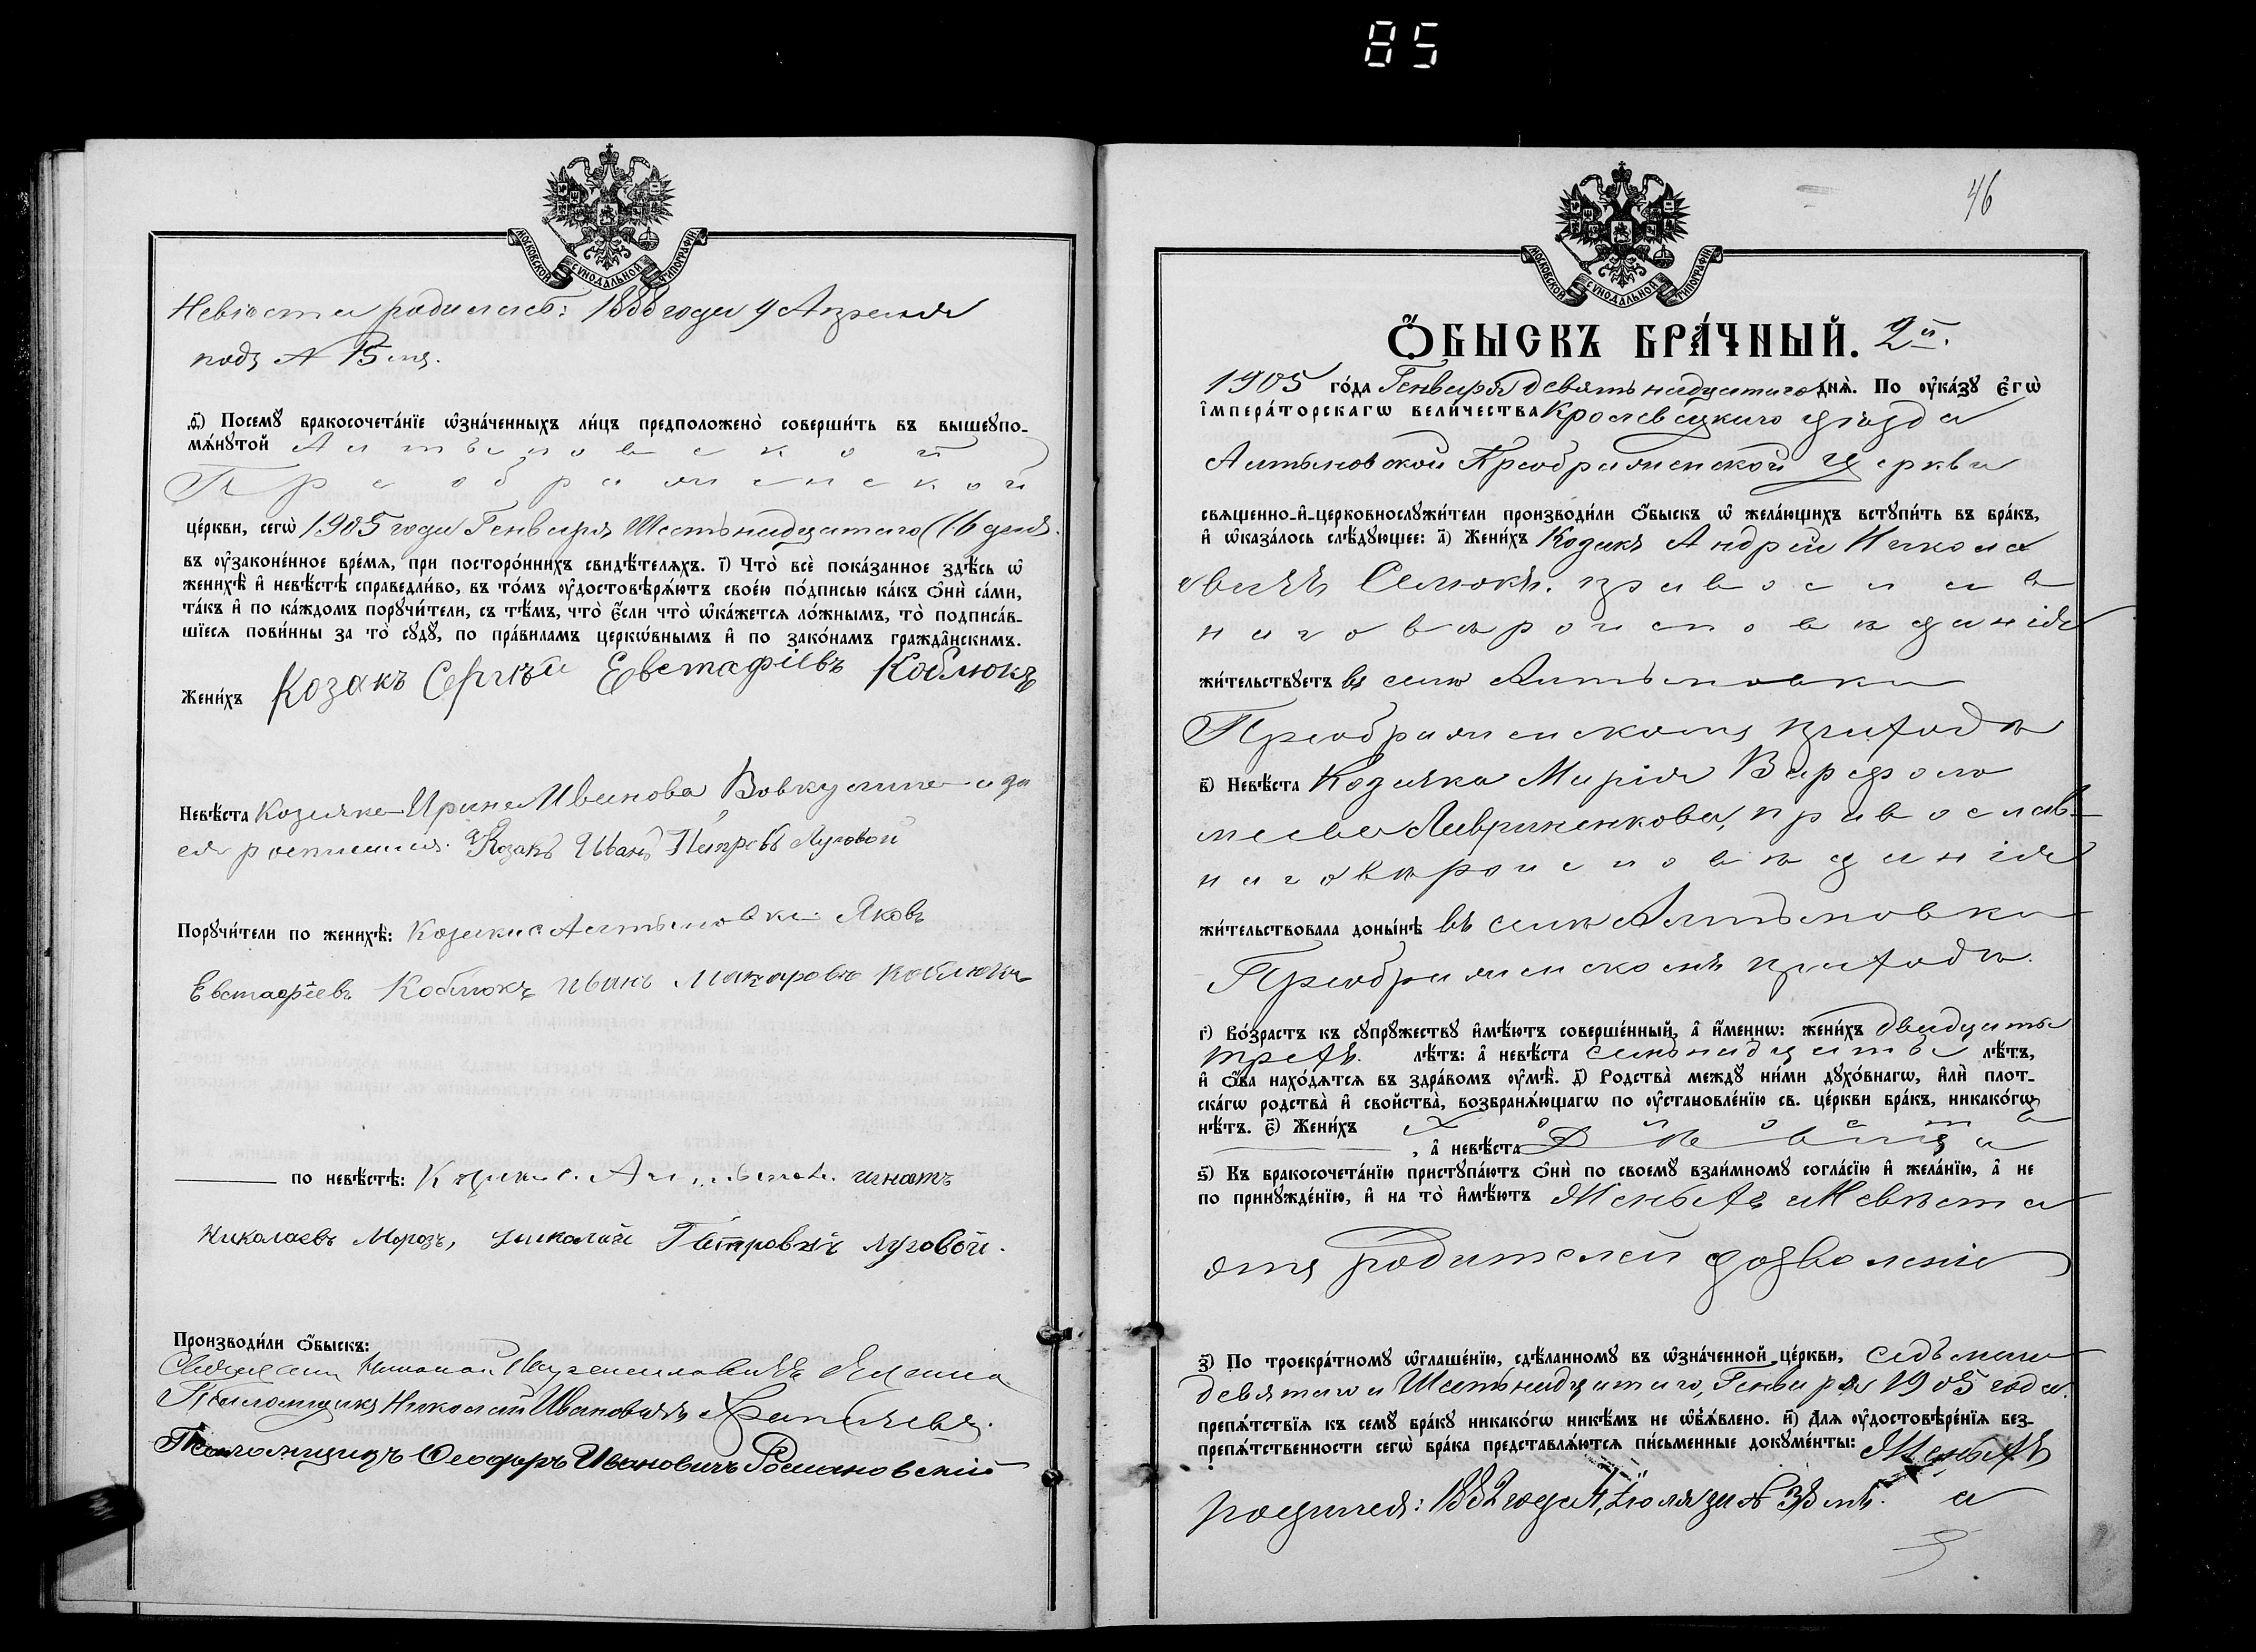 85
МОСКОВСКОЙ СѴНОДАЛЬНОЙ ТИПОГРАФІИ
Невѣста родилась: 1888 года 9 Апреля
подъ № 15 мъ.
д҃) Посемꙋ̀ бракосочета́нїе ѡ҆зна́ченныхъ ли́цъ предположено̀ соверши́ть въ вышеꙋпо-
мѧ́нꙋтой Алтыновской
Преображенской
це́ркви, сегѡ̀ 1905 года Генваря Шестьнадцатаго (16 дня.
въ ᲂу҆законе́нное вре́мѧ, при посторо́ннихъ свидѣ́телѧхъ. і҃) Что̀ всѐ пока́занное здѣ́сь ѡ҆
женихѣ̀ и҆ невѣ́стѣ справедли́во, въ то́мъ ᲂу҆достовѣрѧ́ютъ свое́ю по́дписью ка́къ ѻ҆нѝ са́ми,
та́къ и҆ по ка́ждомъ порꙋчи́тели, съ тѣ́мъ, что̀ є҆́сли что̀ ѡ҆ка́жетсѧ ло́жнымъ, то̀ подписа́в-
шїесѧ пови́нны за то̀ сꙋдꙋ̀, по пра́виламъ церкѡ́внымъ и҆ по зако́намъ гражда̑нскимъ.
Жени́хъ Козакъ Сергѣй Евстафіевъ Коблюкъ
Невѣ́ста Козачка Ирина Иванова за
Козакъ Иванъ Петровъ Луговой
Порꙋчи́тели по женихѣ̀: Козаки с Алтыновки Яковъ
Евстафіевъ Коблюкъ иванъ Макаровъ Коблюкъ
по невѣ́стѣ: Козаки с. игнатъ
Николаевъ Морозъ, николай Петровичъ луговой.
Производи́ли ѻ҆́быскъ:
Священ. Николай
Псаломщикъ Николай Ивановичъ
Псаломщикъ Ѳеодоръ Ивановичъ Романовскій
46
МОСКОВСКОЙ СѴНОДАЛЬНОЙ ТИПОГРАФІИ
Ѻ҆́БЫСКЪ БРА́ЧНЫЙ. 2й.
1905 го́да Генваря девятьнадцатаго днѧ̀. По ᲂу҆ка́зꙋ є҆гѡ̀
і҆мпера́торскагѡ вели́чества Кролевецкаго уѣзда
Алтыновской Преображенской Церкви
свѧщенно-и҆-церковнослꙋжи́тели производи́ли ѻ҆́быскъ ѡ҆ жела́ющихъ встꙋпи́ть въ бра́къ,
и҆ ѡ҆каза́лось слѣ́дꙋющее: а҃) Жени́хъ Козакъ Андрей Никола
евичъ Селюкъ. православ
наговѣроисповѣданія
жи́тельствꙋетъ въ селѣ Алтыновки
Преображенскомъ приходѣ
в҃) Невѣ́ста Козачка Марія Варфоло
меева Лавриненкова, православ-
наговѣроисповѣданія
жи́тельствовала доны́нѣ въ селѣ Алтыновки
Преображенскомъ приходѣ.
г҃) Во́зрастъ къ сꙋпрꙋ́жествꙋ и҆мѣ́ютъ соверше́нный, а҆ и҆́меннѡ: жени́хъ двадцать
трехъ. лѣ́тъ: а҆ невѣ́ста семьнадцать лѣ́тъ,
и҆ ѻ҆́ба нахо́дѧтсѧ въ здра́вомъ ᲂу҆мѣ̀. д҃) Родства̀ междꙋ̀ ни́ми дꙋхо́внагѡ, и҆лѝ плот-
ска́гѡ родства̀ и҆ свойства̀, возбранѧ́ющагѡ по ᲂу҆становле́нїю св. це́ркви бра́къ, никако́гѡ
нѣ́тъ. є҃) Жени́хъ холостъ
, а҆ невѣ́ста Дѣвица
ѕ҃) Къ бракосочета́нїю пристꙋпа́ютъ ѻ҆нѝ по своемꙋ̀ взаи́мномꙋ согла́сїю и҆ жела́нїю, а҆ не
по принꙋжде́нїю, и҆ на то̀ и҆мѣ́ютъ Женихъ и Невѣста
отъ родителей дозволеніе
з҃) По троекра́тномꙋ ѡ҆глаше́нїю, сдѣ́ланномꙋ въ ѡ҆зна́ченной це́ркви, седьмаго
девятаго и Шестьнадцатаго, Генваря 1905 года.
препѧ́тствїѧ къ семꙋ̀ бра́кꙋ никако́гѡ никѣ́мъ не ѡ҆б̾ѧ́влено. и҃) Длѧ̀ ᲂу҆достовѣре́нїѧ без-
препѧ́тственности сегѡ̀ бра́ка представлѧ́ютсѧ пи́сьменные докꙋме́нты: Женихъ
родился: 1882 года 4, Іюля за № 38 мъ. а